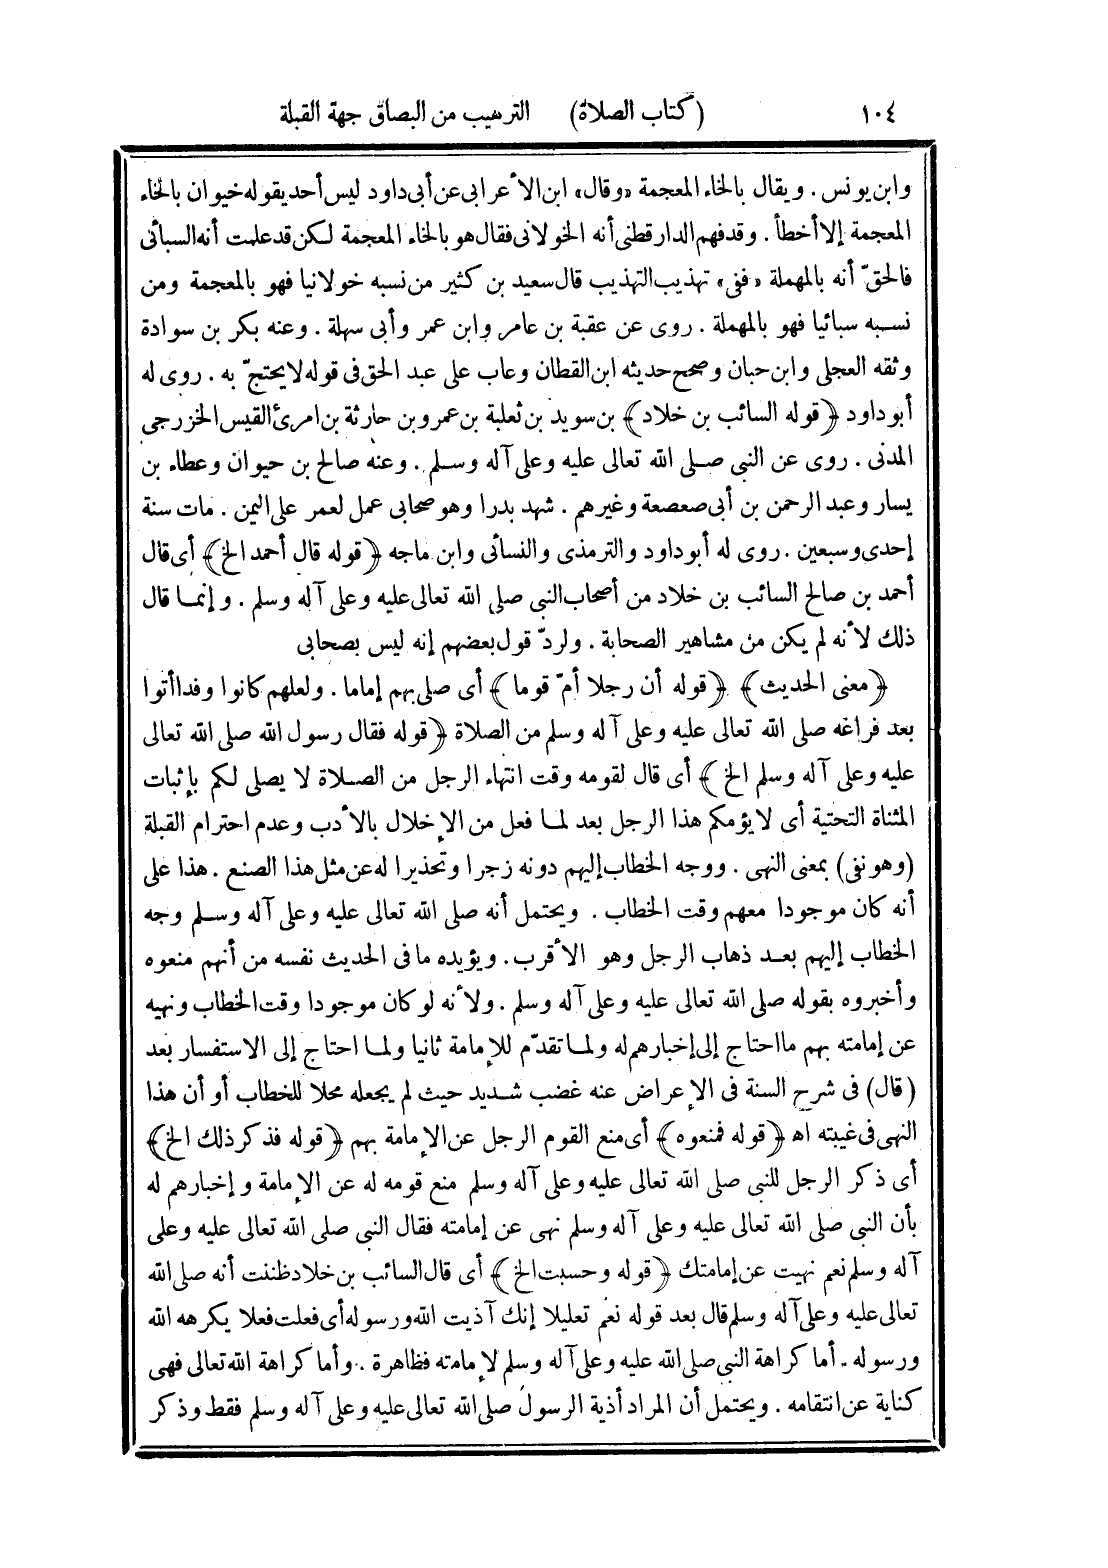 ١٠٤ (كتاب الصلاة) الترهيب من البصاق جهة القبلة
وابن يونس. ويقال بالخاء المعجمة «وقال» ابن الأعرابى عن أبى داود ليس أحد يقوله خيوان بالخاء
المعجمة إلا أخطأ. وقد فهم الدارقطنى أنه الخولانى فقال هو بالخاء المعجمة لكن قد علمت أنه السبائى
فالحقّ أنه بالمهملة «ففى» تهذيب التهذيب قال سعيد بن كثير من نسبه خولانيا فهو بالمعجمة ومن
نسبه سبائيا فهو بالمهملة. روى عن عقبة بن عامر وابن عمر وأبى سهلة. وعنه بكر بن سوادة
وثقه العجلى وابن حبان وصحح حديثه ابن القطان وعاب على عبد الحق فى قوله لا يحتجّ به. روى له
أبو داود ﴿قوله السائب بن خلاد﴾ بن سويد بن ثعلبة بن عمرو بن حارثة بن امرئ القيس الخزرجى
المدنى. روى عن النبى صلى الله تعالى عليه وعلى آله وسلم. وعنه صالح بن حيوان وعطاء بن
يسار وعبد الرحمن بن أبى صعصعة وغيرهم. شهد بدرا وهو صحابى عمل لعمر على اليمن. مات سنة
إحدى وسبعين. روى له أبو داود والترمذى والنسائى وابن ماجه ﴿قوله قال أحمد الخ﴾ أى قال
أحمد بن صالح السائب بن خلاد من أصحاب النبى صلى الله تعالى عليه وعلى آله وسلم. وإنما قال
ذلك لأنه لم يكن من مشاهير الصحابة. ولردّ قول بعضهم إنه ليس بصحابى
﴿معنى الحديث﴾ ﴿قوله أن رجلا أمّ قوما﴾ أى صلى بهم إماما. ولعلهم كانوا وفدا أتوا
بعد فراغه صلى الله تعالى عليه وعلى آله وسلم من الصلاة ﴿قوله فقال رسول الله صلى الله تعالى
عليه وعلى آله وسلم الخ﴾ أى قال لقومه وقت انتهاء الرجل من الصلاة لا يصلى لكم بإثبات
المثناة التحتية أى لا يؤمكم هذا الرجل بعد لما فعل من الإخلال بالأدب وعدم احترام القبلة
(وهو نفى) بمعنى النهى. ووجه الخطاب إليهم دونه زجرا وتحذيرا له عن مثل هذا الصنع. هذا على
أنه كان موجودا معهم وقت الخطاب. ويحتمل أنه صلى الله تعالى عليه وعلى آله وسلم وجه
الخطاب إليهم بعد ذهاب الرجل وهو الأقرب. ويؤيده ما فى الحديث نفسه من أنهم منعوه
وأخبروه بقوله صلى الله تعالى عليه وعلى آله وسلم. ولأنه لو كان موجودا وقت الخطاب ونهيه
عن إمامته بهم ما احتاج إلى إخبارهم له ولما تقدّم للإمامة ثانيا ولما احتاج إلى الاستفسار بعد
(قال) فى شرح السنة فى الإعراض عنه غضب شديد حيث لم يجعله محلا للخطاب أو أن هذا
النهى فى غيبته اه ﴿قوله فمنعوه﴾ أى منع القوم الرجل عن الإمامة بهم ﴿قوله فذكر ذلك الخ﴾
أى ذكر الرجل للنبى صلى الله تعالى عليه وعلى آله وسلم منع قومه له عن الإمامة وإخبارهم له
بأن النبى صلى الله تعالى عليه وعلى آله وسلم نهى عن إمامته فقال النبى صلى الله تعالى عليه وعلى
آله وسلم نعم نهيت عن إمامتك ﴿قوله وحسبت الخ﴾ أى قال السائب بن خلاد ظننت أنه صلى الله
تعالى عليه وعلى آله وسلم قال بعد قوله نعم تعليلا إنك آذيت الله ورسوله أى فعلت فعلا يكرهه الله
ورسوله. أما كراهة النبى صلى الله عليه وعلى آله وسلم لإمامته فظاهرة. وأما كراهة الله تعالى فهى
كناية عن انتقامه. ويحتمل أن المراد أذية الرسول صلى الله تعالى عليه وعلى آله وسلم فقط وذكر